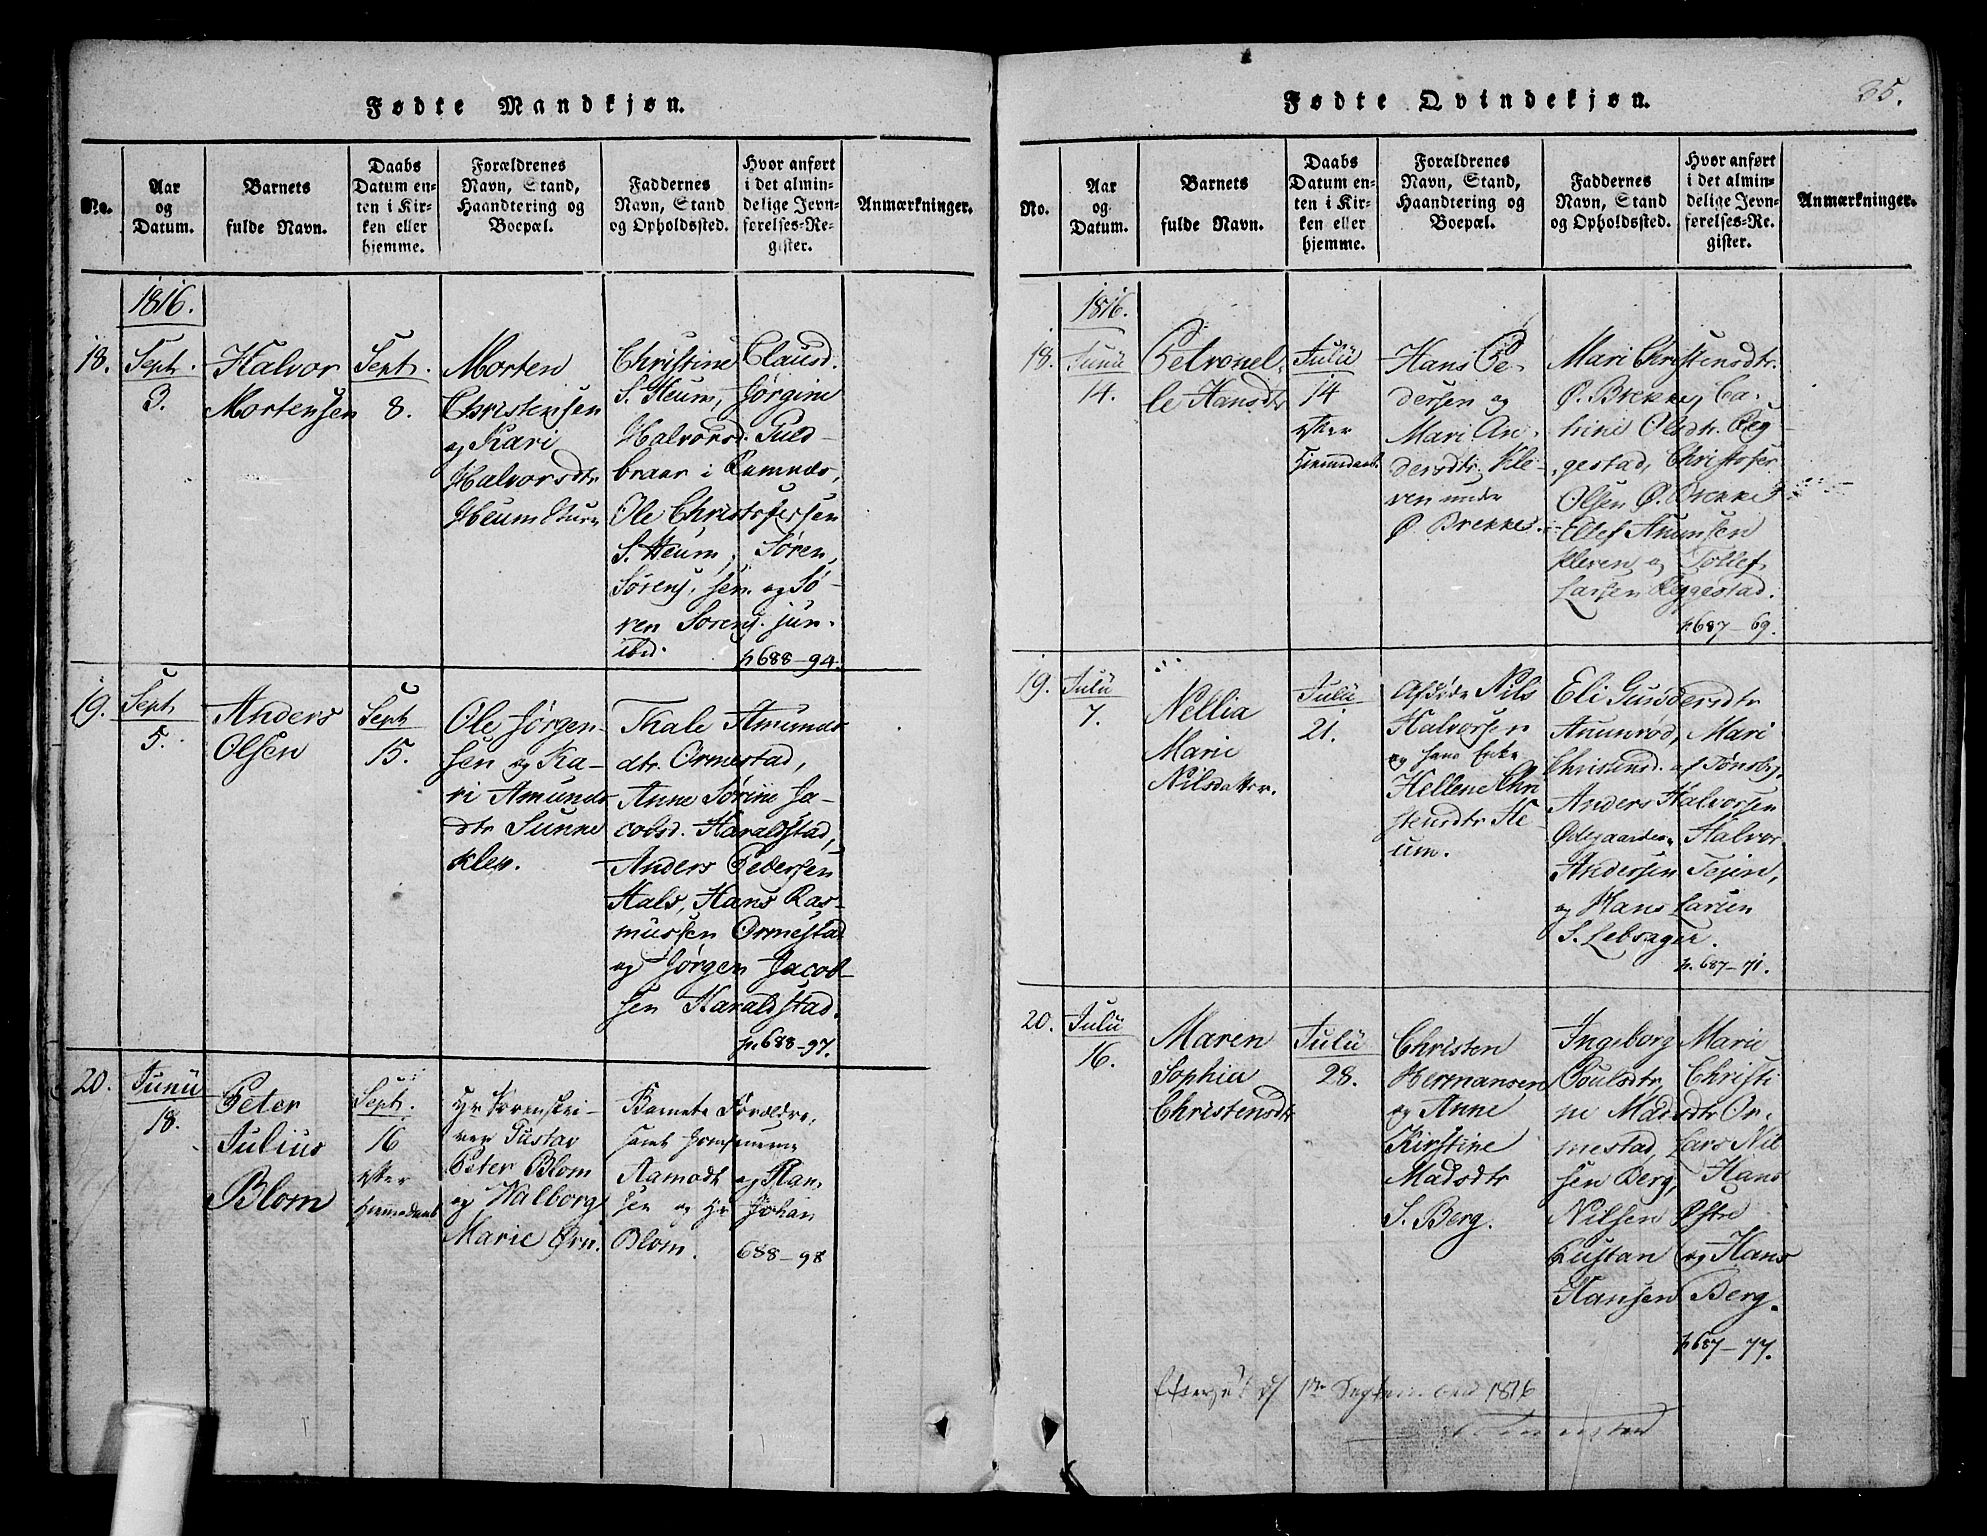 Fødte Mandkjøn.
No.
Aar
og
Datum.
Barnets
fulde Navn.
Daabs
Datum en-
ten i Kir-
ken eller
hjemme.
Forældrenes
Navn, Stand,
Haandtering og
Boepæl.
Faddernes
Navn, Stand
og Opholdssted.
Hvor anført
i det almin-
delige Jevn-
førelses-Re-
gister.
Anmærkninger.
1816.
18.
Sept.
3.
Halvor
Mortensen
Sept.
8.
Morten
Christensen
og Kari
Halvorsdtr
Heum
Christine Clausd.
S. Heum, Jørgine
Halvorsd. Fuld-
braar i Ramnæs,
Ole Christofersen
S. Heum, Søren
Sørens. sen. og Sø-
ren Sørens. jun.
ibid.
p 688-94.
19.
Sept
5.
Anders
Olsen
Sept
15.
Ole Jørgen-
sen og Ka-
ri Amunds
dtr Sunne
klev.
Thale Amunds
dtr. Ormestad,
Anne Sørine Ja-
cobsd. Haraldstad,
Anders Pedersen
Hals, Hans Ras-
mussen Ormestad
og Jørgen Jacob-
sen Haraldstad.
p. 688-97.
20.
Junii
18.
Peter
Julius
Blom
Sept.
16
efter
hjemmedaab
Hr Sorenskri-
ver Gustav
Peter Blom
og Valborg
Marie Ørn.
Barnets Forældre,
samt
Aamodt og Han-
sen og Hr Johan
Blom.
688-98
Fødte Qvindekjøn.
35.
No.
Aar
og
Datum.
Barnets
fulde Navn.
Daabs
Datum en-
ten i Kir-
ken eller
hjemme.
Forældrenes
Navn, Stand,
Haandtering og
Boepæl.
Faddernes
Navn, Stand
og Opholdssted.
Hvor anført
i det almin-
delige Jevn-
førelses-Re-
gister.
Anmærkninger.
1816.
18.
Junii
14.
Petronel-
le Hansdtr
Julii
14
efter
hjemmedaab.
Hans Pe-
dersen og
Mari An-
dersdtr. Kle-
ven under
Ø. Brekke.
Mari Christensdtr.
Ø. Brekke, Ca-
trine Olsdtr. Reg-
gestad, Christofer
Olsen Ø. Brekke,
Ellef Amunsen
Kleven og Tollef
Larsen Reggestad.
p. 687-69.
19.
Julii
7.
Nellia
Marie
Nilsdatter.
Julii
21.
Afdøde Nils
Halvorsen
og hans Enke
Hellene Chri
stensdtr He-
um.
Eli Gundersdtr
Amunrød, Mari
Christensd. af Tønsbg,
Anders Halvorsen
Ødegaarden, Halvor
Andersen Tejen,
og Hans Larsen
S. Lebsager.
p. 687-71.
20.
Julii
16.
Maren
Sophia
Christensdtr
Julii
28.
Christen
Hermansen
og Anne
Kirstine
Madsdtr
S. Berg.
Ingeborg Marie
Poulsdtr, Christi
ne Madsdtr Or-
mestad, Lars Nil
sen Berg, Hans
Nilsen Østre
Lustan og Hans
Hansen Berg.
p 687-77.
1816